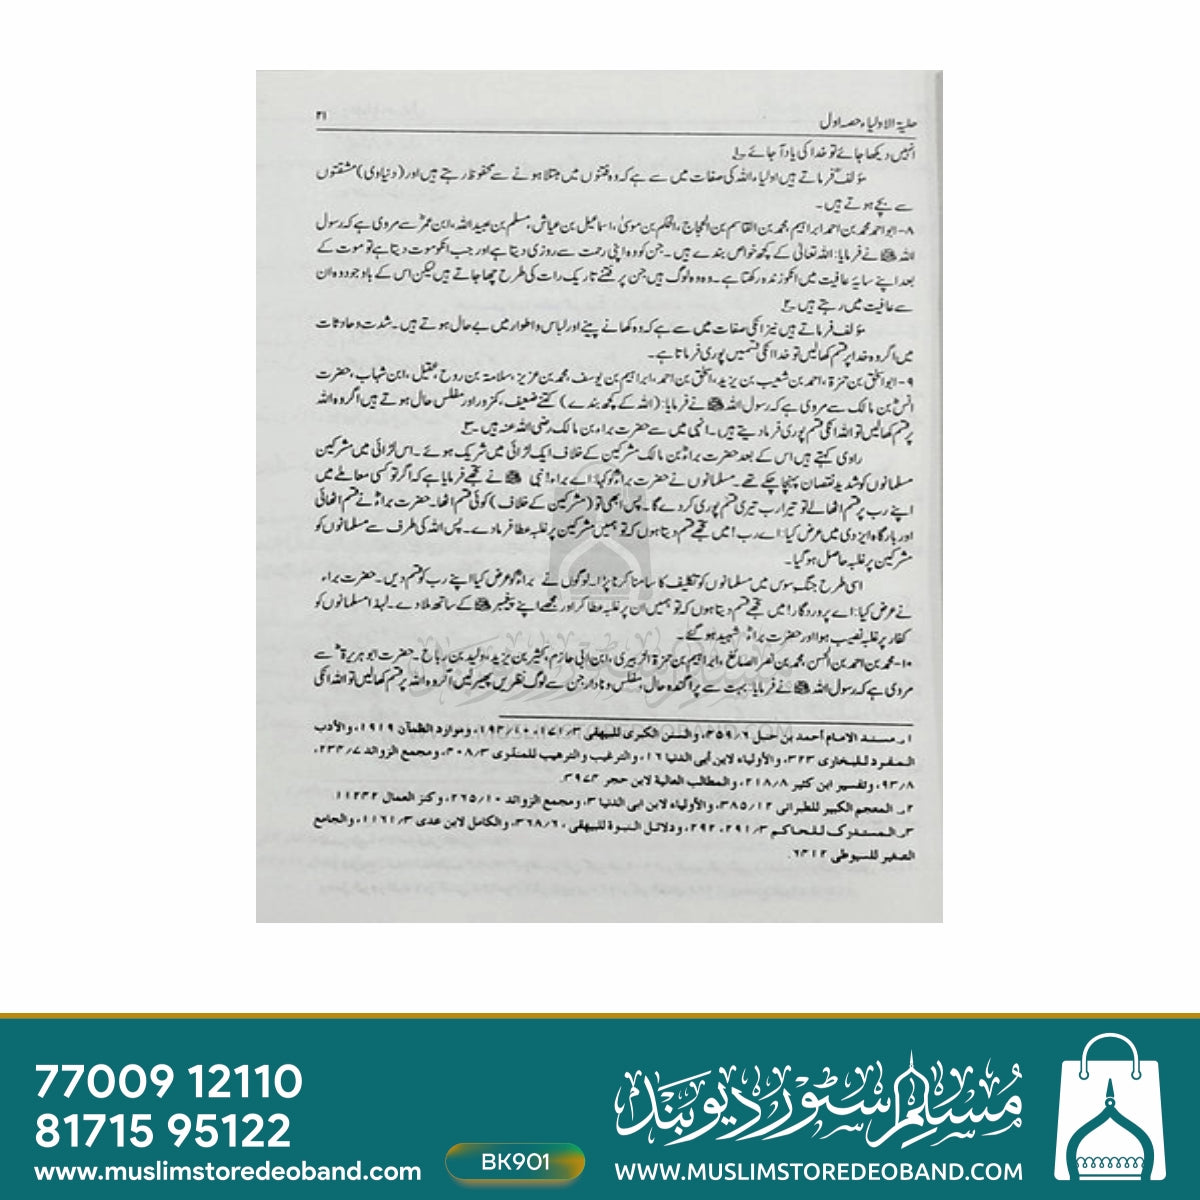 حلیۃ الاولیاء حصہ اول ۴۱
انہیں دیکھا جائے تو خدا کی یاد آ جائے۔۱
مؤلف فرماتے ہیں اولیاء اللہ کی صفات میں سے ہے کہ وہ فتنوں میں مبتلا ہونے سے محفوظ رہتے ہیں اور (دنیاوی) مشقتوں
سے بچے ہوتے ہیں۔
۸- ابو احمد محمد بن احمد ابراہیم، محمد بن القاسم بن الحجاج، الحکم بن موسیٰ، اسماعیل بن عیاش، مسلم بن عبید اللہ، ابن عمرؓ سے مروی ہے کہ رسول
اللہ ﷺ نے فرمایا: اللہ تعالیٰ کے کچھ خواص بندے ہیں۔ جن کو وہ اپنی رحمت سے روزی دیتا ہے اور جب انکو موت دیتا ہے تو موت کے
بعد اپنے سایۂ عافیت میں انکو زندہ رکھتا ہے۔ وہ وہ لوگ ہیں جن پر فتنے تاریک رات کی طرح چھا جاتے ہیں لیکن اس کے باوجود وہ ان
سے عافیت میں رہتے ہیں۔۲
مؤلف فرماتے ہیں نیز انکی صفات میں سے ہے کہ وہ کھانے پینے اور لباس و اطوار میں بے حال ہوتے ہیں۔ شدت و حادثات
میں اگر وہ خدا پر قسم کھا لیں تو خدا انکی قسمیں پوری فرماتا ہے۔
۹- ابو اسحٰق بن حمزۃ، احمد بن شعیب بن یزید، اسحٰق بن احمد، ابراہیم بن یوسف، محمد بن عزیز، سلامۃ بن روح، عقیل، ابن شہاب، حضرت
انسؓ بن مالک سے مروی ہے کہ رسول اللہ ﷺ نے فرمایا: (اللہ کے کچھ بندے) کتنے ضعیف، کمزور اور مفلس حال ہوتے ہیں اگر وہ اللہ
پر قسم کھا لیں تو اللہ انکی قسم پوری فرما دیتے ہیں۔ انہی میں سے حضرت براء بن مالک رضی اللہ عنہ ہیں۔۳
راوی کہتے ہیں اس کے بعد حضرت براءؓ بن مالک مشرکین کے خلاف ایک لڑائی میں شریک ہوئے۔ اس لڑائی میں مشرکین
مسلمانوں کو شدید نقصان پہنچا چکے تھے۔ مسلمانوں نے حضرت براءؓ کو کہا: اے براء! نبی ﷺ نے تجھے فرمایا ہے کہ اگر تو کسی معاملے میں
اپنے رب پر قسم اٹھا لے تو تیرا رب تیری قسم پوری کر دے گا۔ پس ابھی تو (مشرکین کے خلاف) کوئی قسم اٹھا۔ حضرت براءؓ نے قسم اٹھائی
اور بارگاہ ایزدی میں عرض کیا: اے رب! میں تجھے قسم دیتا ہوں کہ تو ہمیں مشرکین پر غلبہ عطا فرما دے۔ پس اللہ کی طرف سے مسلمانوں کو
مشرکین پر غلبہ حاصل ہو گیا۔
اسی طرح جنگ سوس میں مسلمانوں کو تکلیف کا سامنا کرنا پڑا۔ لوگوں نے براءؓ کو عرض کیا اپنے رب کو قسم دیں۔ حضرت براء
نے عرض کیا: اے پروردگار! میں تجھے قسم دیتا ہوں کہ تو ہمیں ان پر غلبہ عطا کر اور مجھے اپنے پیغمبر ﷺ کے ساتھ ملا دے۔ لہٰذا مسلمانوں کو
کفار پر غلبہ نصیب ہوا اور حضرت براءؓ شہید ہو گئے۔
۱۰- محمد بن احمد بن الحسن، محمد بن نصر الصائغ، ابراہیم بن حمزۃ الزبیری، ابن ابی حازم، کثیر بن یزید، ولید بن رباح، حضرت ابو ہریرۃؓ سے
مروی ہے کہ رسول اللہ ﷺ نے فرمایا: بہت سے پراگندہ حال، مفلس و نادار جن سے لوگ نظریں پھیر لیں اگر وہ اللہ پر قسم کھا لیں تو اللہ انکی
۱۔ مسند الامام أحمد بن حنبل ۶/۴۵۹، والسنن الكبرى للبيهقي ۳/۱۷۱، ۱۰/۱۹۳، وموارد الظمآن ۱۹۱۹، والأدب
المفرد للبخاري ۳۲۳، والأولياء لابن أبي الدنيا ۱۶، والترغيب والترهيب للمنذري ۳/۴۰۸، ومجمع الزوائد ۷/۲۳۴،
۸/۹۳، وتفسير ابن كثير ۸/۲۱۸، والمطالب العالية لابن حجر ۳۹۷۴.
۲۔ المعجم الكبير للطبراني ۱۲/۳۸۵، والأولياء لابن ابي الدنيا ۳، ومجمع الزوائد ۱۰/۲۶۵، وكنز العمال ۱۱۲۴۲.
۳۔ المستدرك للحاكم ۳/۲۹۱، ۲۹۲، ودلائل النبوة للبيهقي ۶/۳۶۸، والكامل لابن عدي ۳/۱۱۶۱، والجامع
الصغير للسيوطي ۶۴۱۲.
77009 12110
81715 95122
www.muslimstoredeoband.com
BK901
مسلم سٹور دیوبند
WWW.MUSLIMSTOREDEOBAND.COM